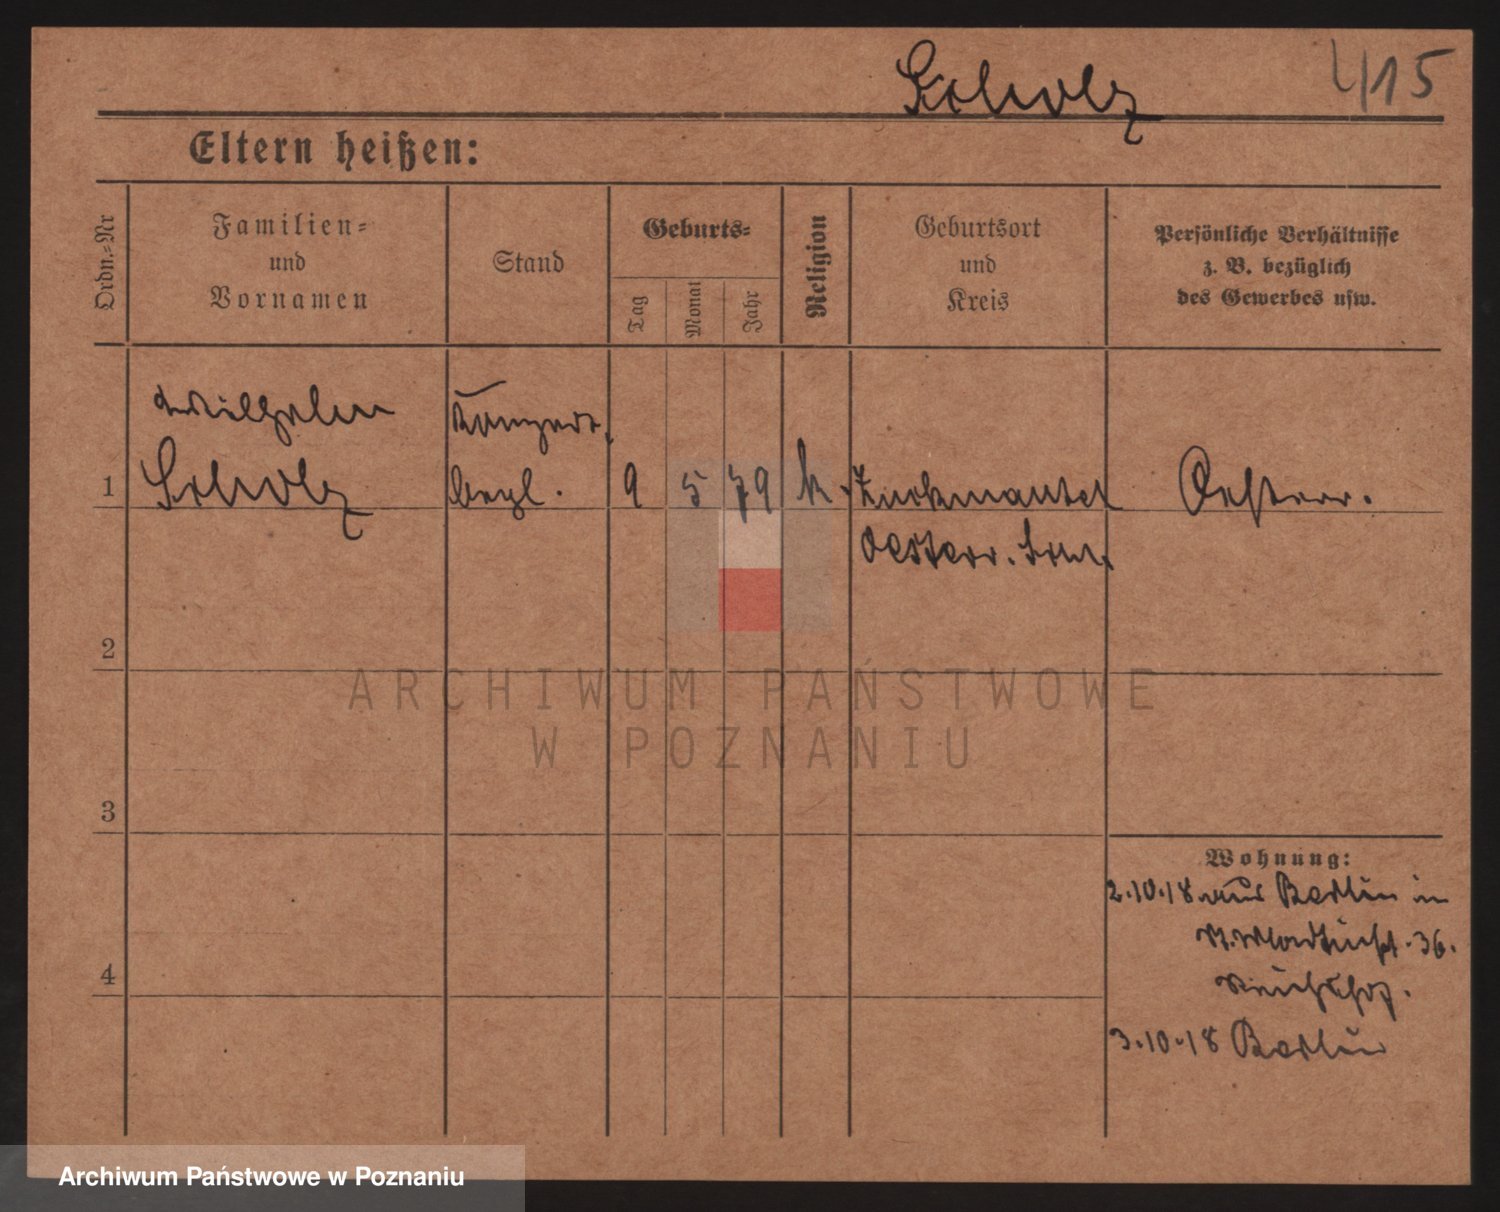 Scholz 415
Eltern heißen:
Ordn.-Nr
Familien-
und
Vornamen
Stand
Geburts-
Tag
Monat
Jahr
Religion
Geburtsort
und
Kreis
Persönliche Verhältnisse
z. B. bezüglich
des Gewerbes usw.
Wilhelm Konzert.
1 Scholz begl. 9 5 79 k. Zuckmantel Oesterr.
Oesterr. Schl.
2
ARCHIWUM PAŃSTWOWE
W POZNANIU
3
Wohnung:
2.10.18 aus Berlin in
36.
4
3.10.18 Berlin
Archiwum Państwowe w Poznaniu